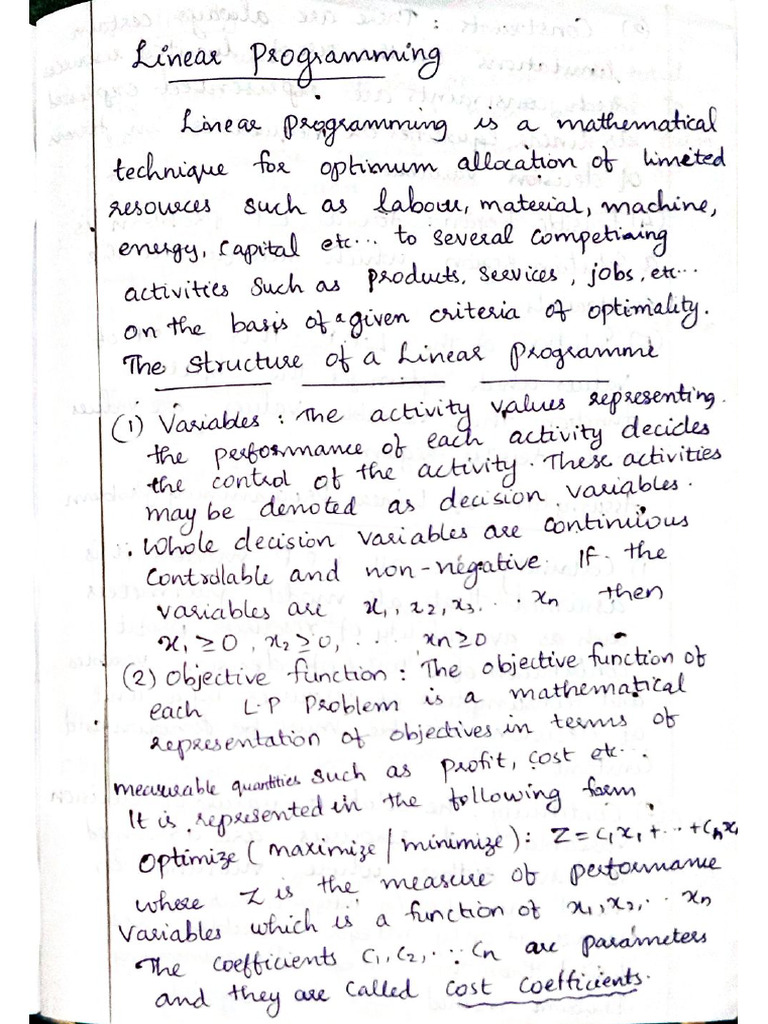 Linear Programming
Linear programming is a mathematical
technique for optimum allocation of limited
resources such as labour, material, machine,
energy, capital etc... to several competing
activities such as products, services, jobs, etc...
on the basis of a given criteria of optimality.
The structure of a Linear Programme
(1) Variables : The activity values representing
the performance of each activity decides
the control of the activity. These activities
may be denoted as decision variables.
Whole decision variables are continuous
controlable and non-negative. If the
variables are x₁, x₂, x₃ ... xn then
x₁ ≥ 0, x₂ ≥ 0, ... xn ≥ 0
(2) Objective function : The objective function of
each L.P Problem is a mathematical
representation of objectives in terms of
measurable quantities such as profit, cost etc...
It is represented in the following form
Optimize (maximize / minimize): Z = C₁x₁ + ... + Cnx
where Z is the measure of performance
variables which is a function of x₁, x₂, ... xn
The coefficients C₁, C₂, ... Cn are parameters
and they are called cost coefficients.